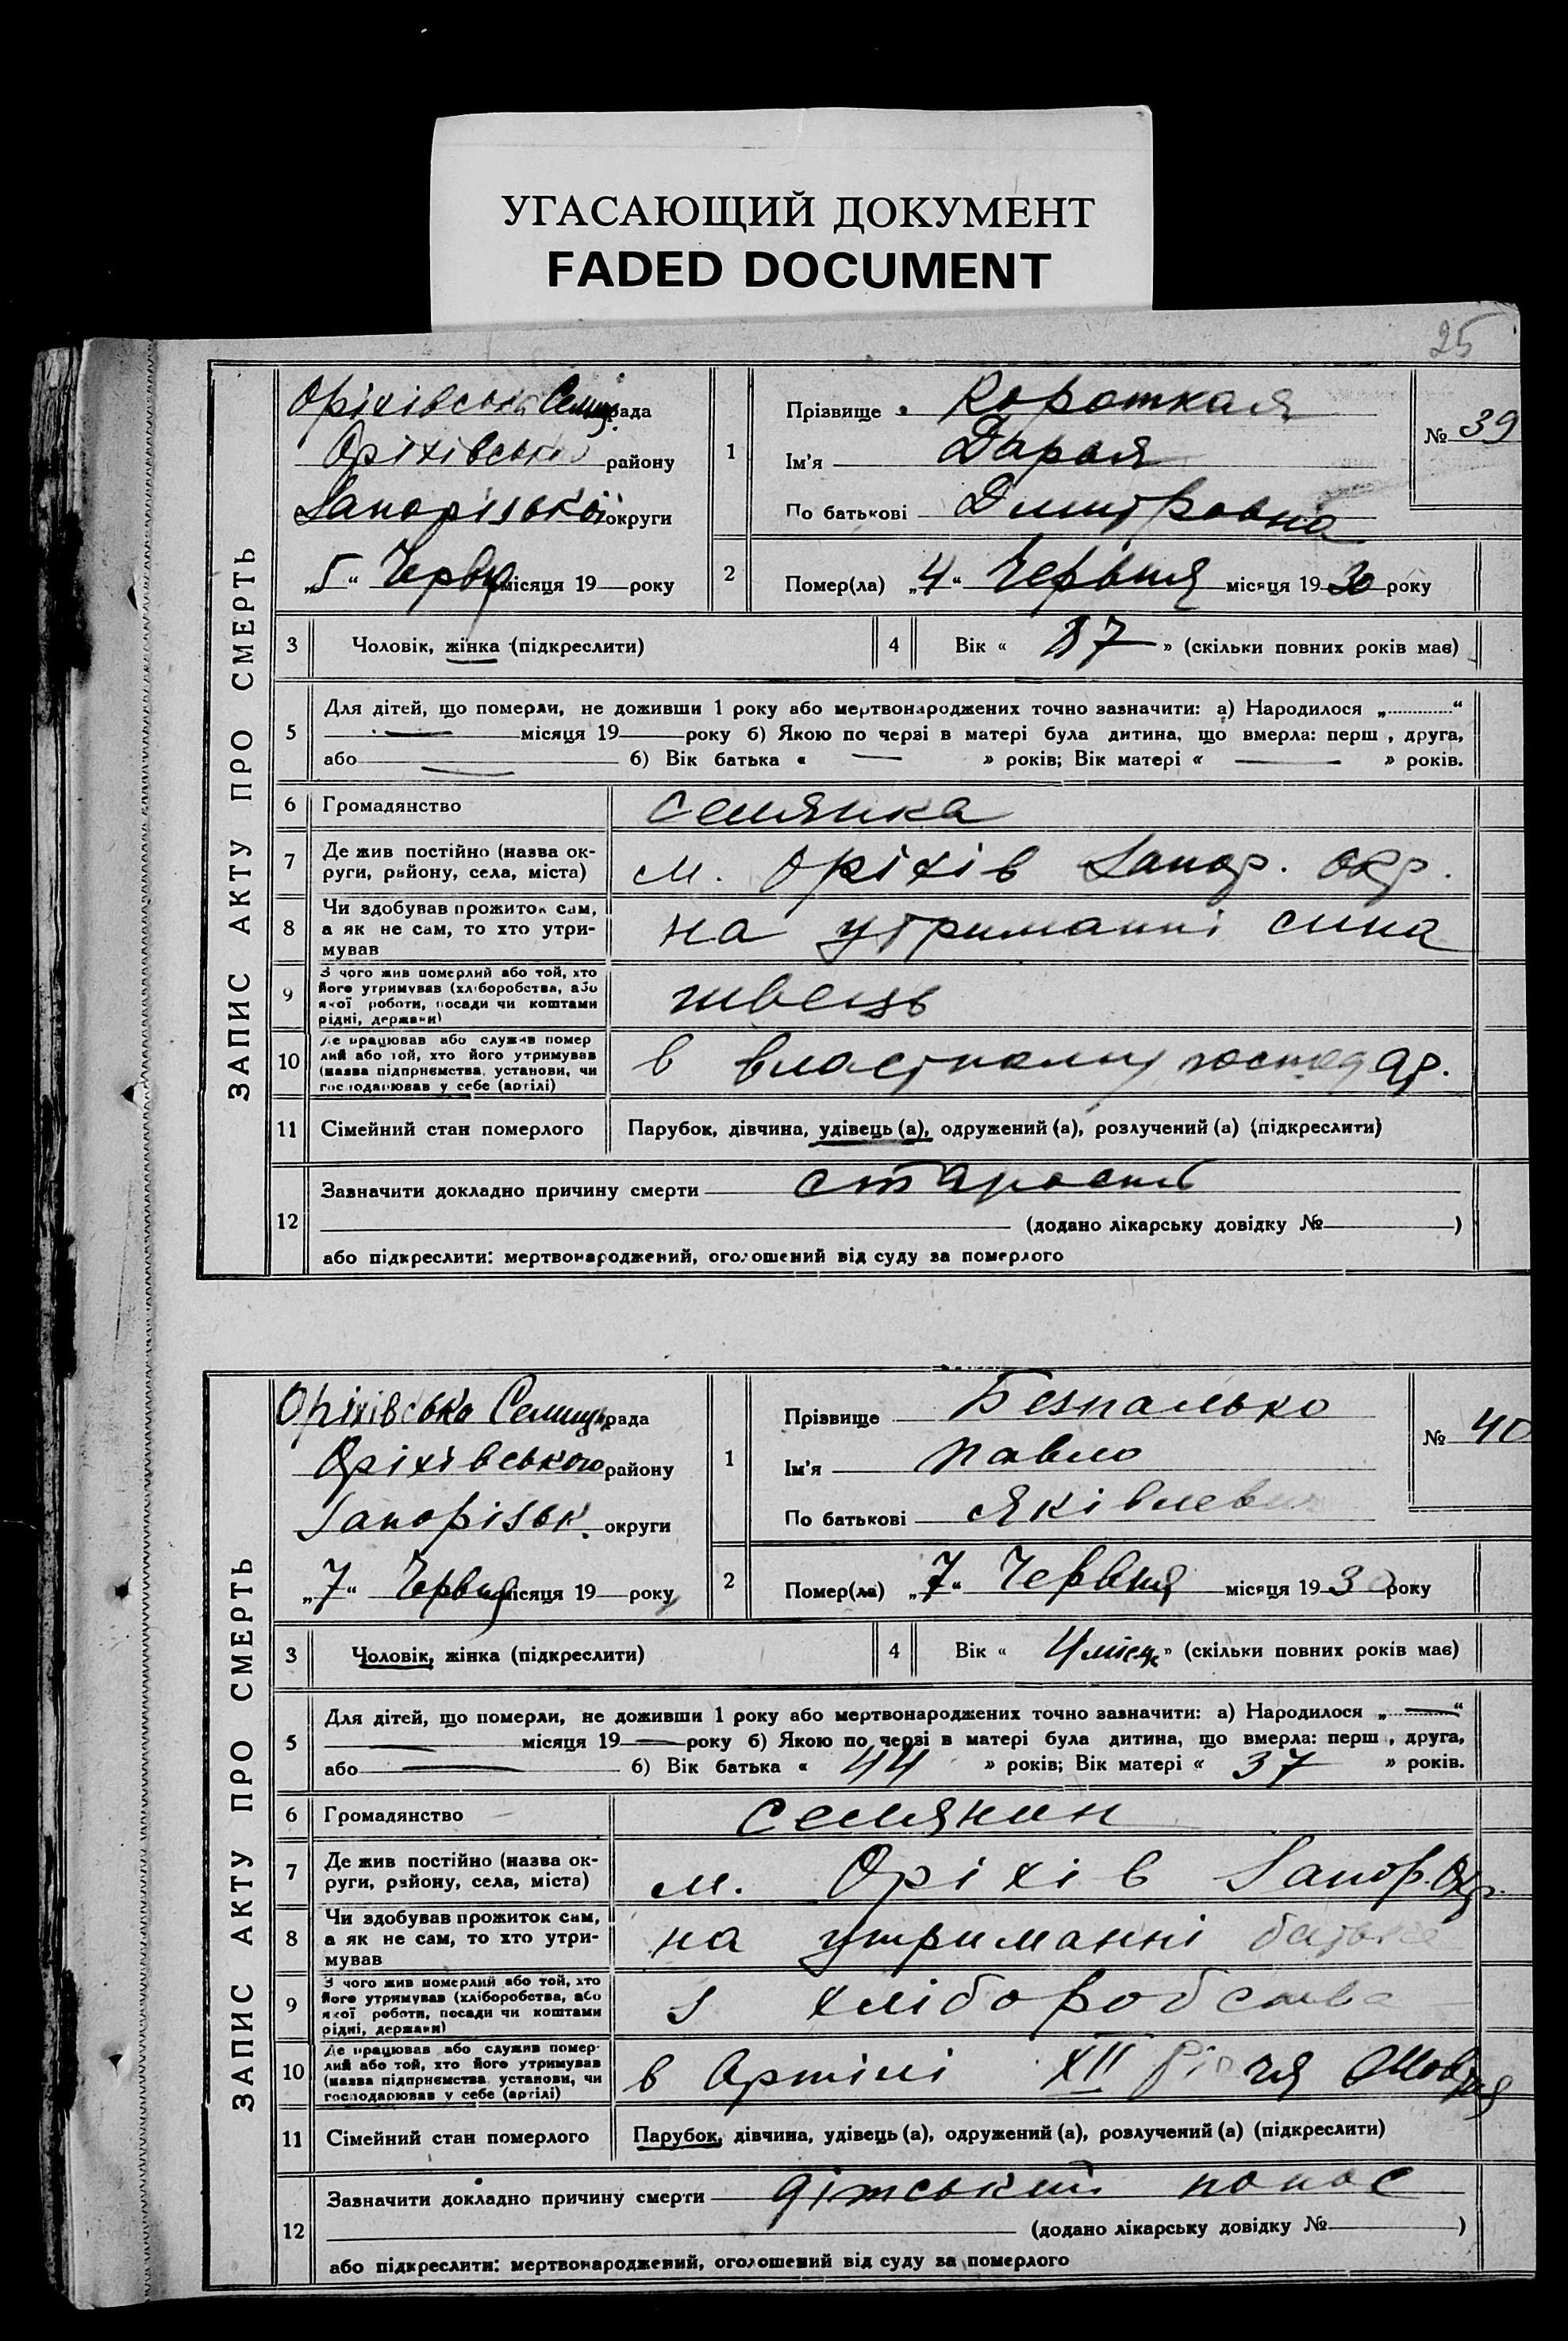 УГАСАЮЩИЙ ДОКУМЕНТ
FADED DOCUMENT
25
ЗАПИС АКТУ ПРО СМЕРТЬ
Оріхівська Селищ. рада
Оріхівсько району
Запорізької округи
„5“ Червн місяця 19 року
1
Прізвище Короткая
Ім'я Дарья
По батькові Димитровна
№ 39
2
Помер(ла) „4“ Червня місяця 1930 року
3
Чоловік, жінка (підкреслити)
4
Вік « 87 » (скільки повних років має)
5
Для дітей, що померли, не доживши 1 року або мертвонароджених точно зазначити: а) Народилося „ “
— місяця 19 року б) Якою по черзі в матері була дитина, що вмерла: перш , друга,
або — б) Вік батька « — » років; Вік матері « — » років.
6
Громадянство
селянка
7
Де жив постійно (назва ок-
руги, району, села, міста)
м. Оріхів Запор. окр.
8
Чи здобував прожиток сам,
а як не сам, то хто утри-
мував
на утриманні сина
9
З чого жив померлий або той, хто
його утримував (хліборобства, або
якої роботи, посади чи коштами
рідні, держави)
швець
10
Де працював або служив помер
лий або той, хто його утримував
(назва підприємства, установи, чи
господарював у себе (артілі)
в власному господар.
11
Сімейний стан померлого
Парубок, дівчина, удівець (а), одружений (а), розлучений (а) (підкреслити)
12
Зазначити докладно причину смерти старость
(додано лікарську довідку № )
або підкреслити: мертвонароджений, оголошений від суду за померлого
ЗАПИС АКТУ ПРО СМЕРТЬ
Оріхівська Селищ. рада
Оріхівського району
Запорізьк. округи
„7“ Червня місяця 19 року
1
Прізвище Безпалько
Ім'я Павло
По батькові Яківлевич
№ 40
2
Помер(ла) „7“ Червня місяця 1930 року
3
Чоловік, жінка (підкреслити)
4
Вік « 4 місяц » (скільки повних років має)
5
Для дітей, що померли, не доживши 1 року або мертвонароджених точно зазначити: а) Народилося „ — “
— місяця 19 — року б) Якою по черзі в матері була дитина, що вмерла: перш , друга,
або — б) Вік батька « 44 » років; Вік матері « 37 » років.
6
Громадянство
селянин
7
Де жив постійно (назва ок-
руги, району, села, міста)
м. Оріхів Запор. Окр.
8
Чи здобував прожиток сам,
а як не сам, то хто утри-
мував
на утриманні батька
9
З чого жив померлий або той, хто
його утримував (хліборобства, або
якої роботи, посади чи коштами
рідні, держави)
з хліборобства
10
Де працював або служив помер-
лий або той, хто його утримував
(назва підприємства, установи, чи
господарював у себе (артілі)
в Артілі XII річ чя Жовтня
11
Сімейний стан померлого
Парубок, дівчина, удівець (а), одружений (а), розлучений (а) (підкреслити)
12
Зазначити докладно причину смерти дітський понос
(додано лікарську довідку № )
або підкреслити: мертвонароджений, оголошений від суду за померлого